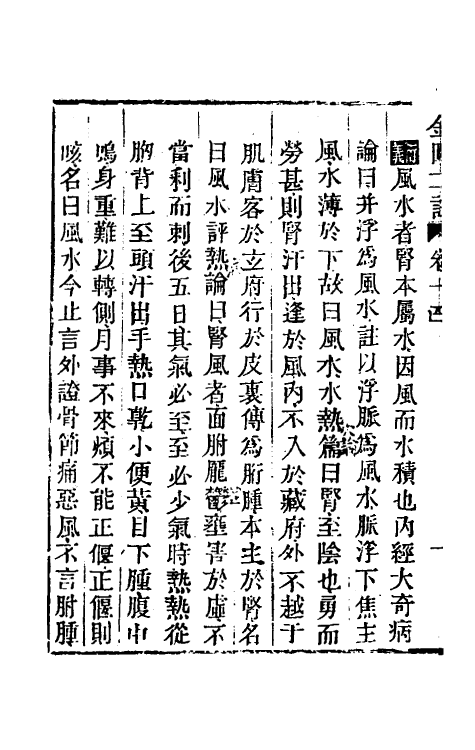 金匱二註 卷十四 一
衍義風水者腎本屬水因風而水積也內經大奇病
論曰并浮爲風水註以浮脈爲風水脈浮下焦主
風水薄於下故曰風水水熱篇曰腎至陰也勇而
勞甚則腎汗出逢於風內不入於藏府外不越于
肌膚客於玄府行於皮裏傳爲胕腫本主於腎名
曰風水評熱論曰腎風者面胕龎壅害於虛不
當刺而刺後五日其氣必至至必少氣時熱熱從
胸背上至頭汗出手熱口乾小便黃目下腫腹中
鳴身重難以轉側月事不來煩不能正偃正偃則
咳名曰風水今止言外證骨節痛惡風不言胕腫